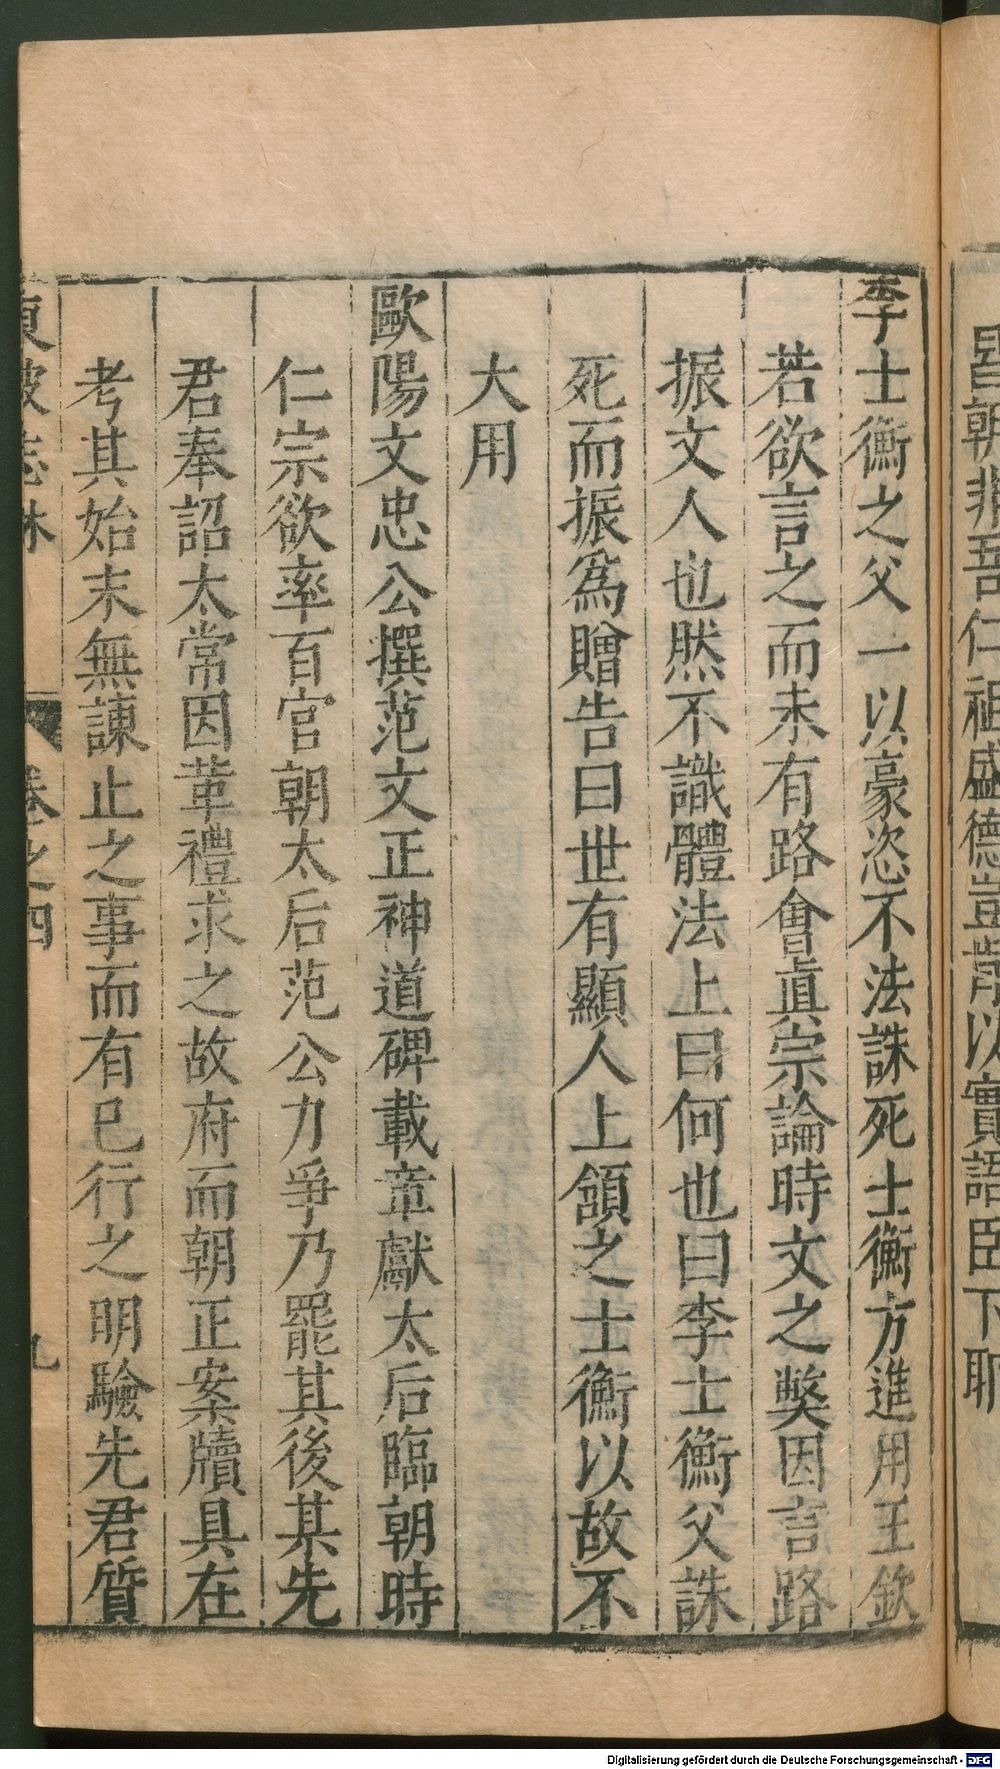 昌朝非吾仁祖盛德豈肯以實語臣下耶
李士衡之父一以豪恣不法誅死士衡方進用王欽
若欲言之而未有路會真宗論時文之獘因言路
振文人也然不識體法上曰何也曰李士衡父誅
死而振爲贈告曰世有顯人上頷之士衡以故不
大用
歐陽文忠公撰范文正神道碑載章獻太后臨朝時
仁宗欲率百官朝太后范公力爭乃罷其後某先
君奉詔太常因革禮求之故府而朝正案牘具在
考其始末無諫止之事而有已行之明驗先君質
東坡志林 卷之四 九
Digitalisierung gefördert durch die Deutsche Forschungsgemeinschaft - DFG